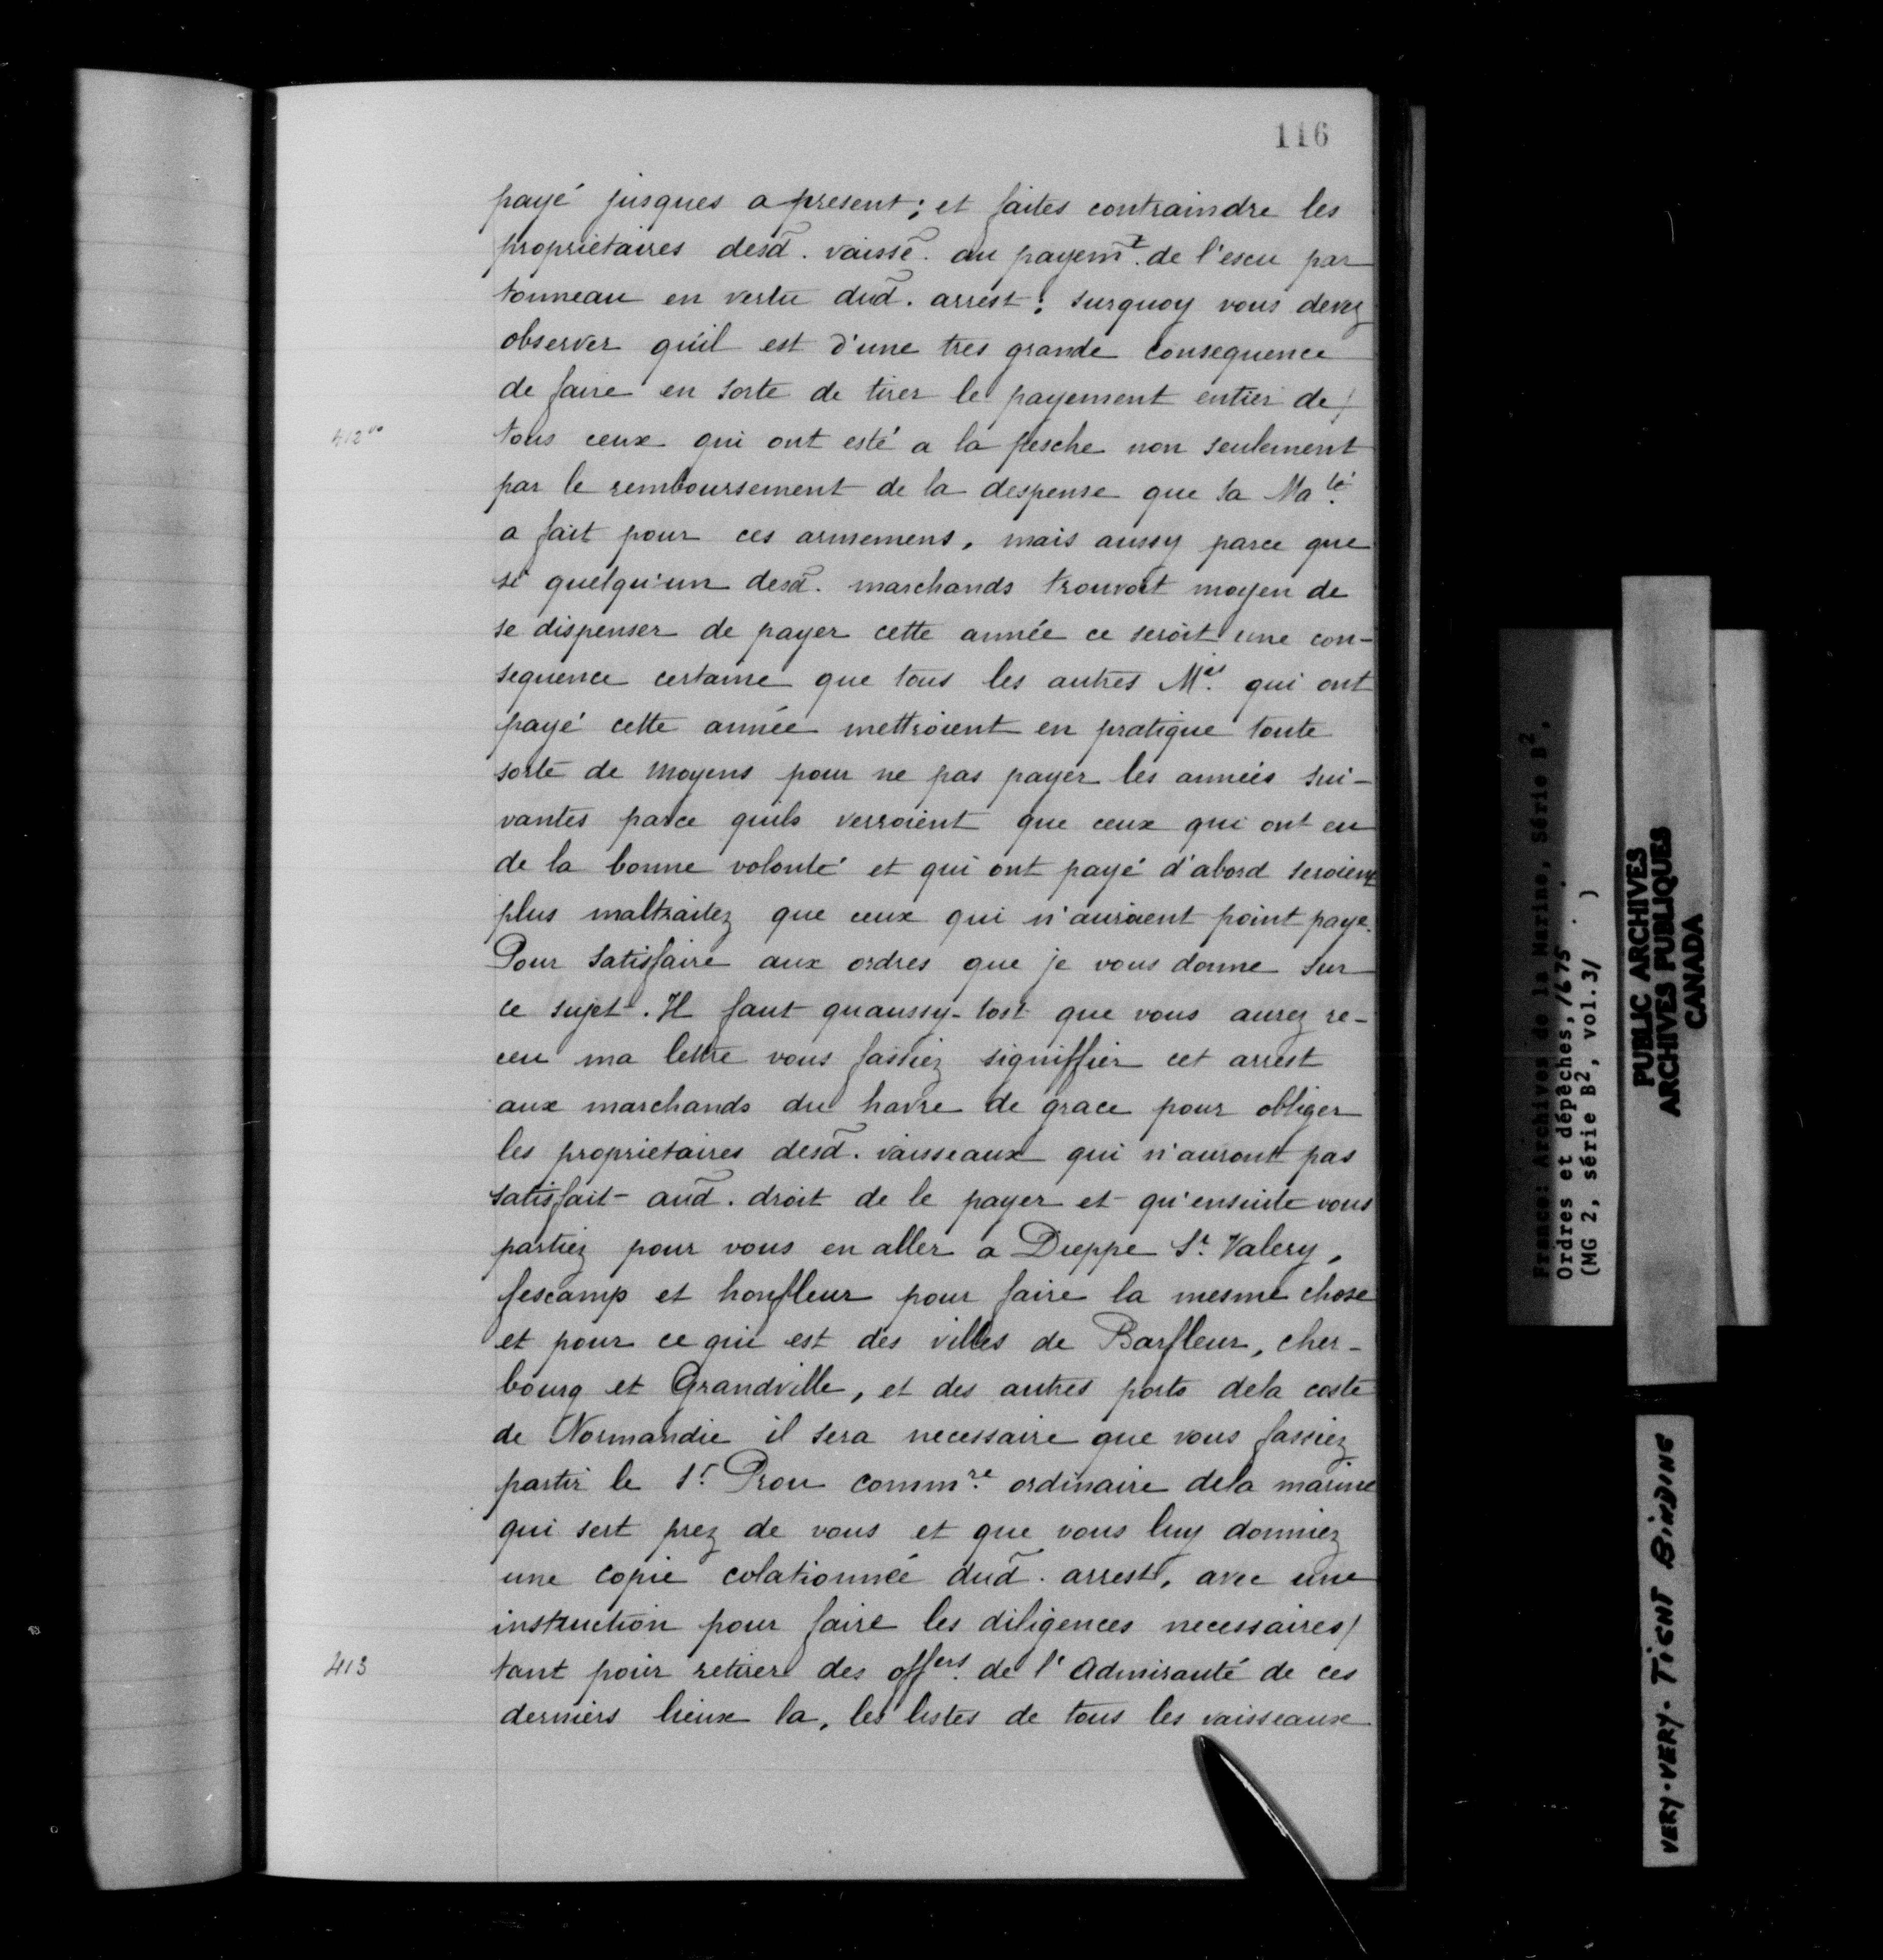 116
payé jusques a present; et faites contraindre les
proprietaires desd̃. vaissẽ. au payem̃t. de l'escu par
tonneau en vertu dud̃. arrest; surquoy vous devez
observer qu'il est d'une tres grande consequence
de faire en sorte de tirer le payement entier de
412 vo
tous ceux qui ont esté a la pesche non seulement
par le remboursement de la despense que sa Ma té.
a fait pour ces armemens, mais aussy parce que
si quelqu'un desd̃. marchands trouvoit moyen de
se dispenser de payer cette année ce seroit une con-
sequence certaine que tous les autres Mds. qui ont
payé cette année mettroient en pratique toute
sorte de moyens pour ne pas payer les années sui-
vantes parce quils verroient que ceux qui ont eu
de la bonne volonté et qui ont payé d'abord seroient
plus maltraitez que ceux qui n'auroient point payé.
Pour satisfaire aux ordres que je vous donne sur
ce sujet. Il faut quaussy-tost que vous aurez re-
ceu ma lettre vous fassiez signiffier cet arrest
aux marchands du havre de grace pour obliger
les proprietaires desd̃. vaisseaux qui n'auront pas
satisfait aud̃. droit de le payer et qu'ensuite vous
partiez pour vous en aller a Dieppe St. Valery,
fescamp et honfleur pour faire la mesme chose
et pour ce qui est des villes de Barfleur, cher-
bourg et Grandville, et des autres ports dela coste
de Normandie il sera necessaire que vous fassiez
partir le Sr. Prou commre. ordinaire dela marine
qui sert prez de vous et que vous luy donniez
une copie colationnée dud̃. arrest, avec une
instruction pour faire les diligences necessaires
413
tant pour retirer des offers. de l'admirauté de ces
derniers lieux la, les listes de tous les vaisseaux
France: Archives de la Marine, Série B2,
Ordres et dépêches, 1675 . .
(MG 2, série B2, vol.31 )
PUBLIC ARCHIVES
ARCHIVES PUBLIQUES
CANADA
VERY-VERY-TIGHT BINDING